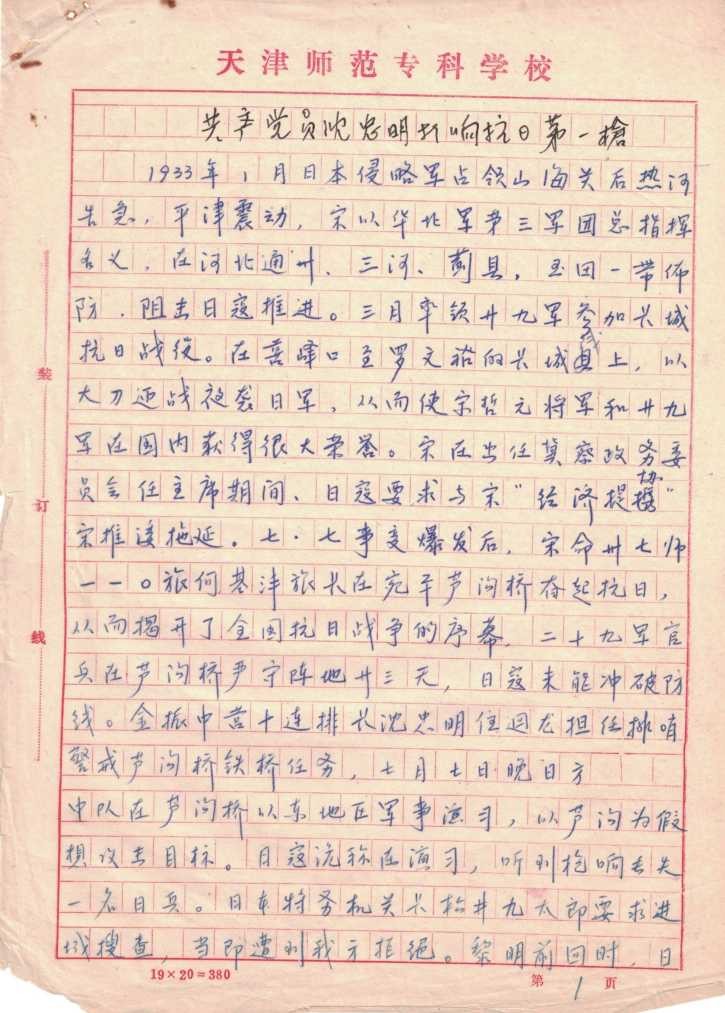 天津师范专科学校
共产党员沈忠明打响抗日第一槍
1933年1月日本侵略军占领山海关后热河
告急，平津震动，宋以华北军第三军团总指挥
名义，在河北通州、三河、蓟县，玉田一带佈
防，阻击日寇推进。三月率领廿九军参加长城
抗日战役。在喜峰口至罗文裕的长城上，以
大刀迎战夜袭日军，从而使宋哲元将军和廿九
军在国内获得很大荣誉。宋在出任冀察政务委
协
员会任主席期间、日寇要求与宋“经济提携”
宋推诿拖延。七·七事变爆发后，宋命卅七师
一一〇旅何基沣旅长在宛平芦沟桥奋起抗日，
从而揭开了全国抗日战争的序幕，二十九军官
兵在芦沟桥严守阵地廿三天，日寇未能冲破防
线。金振中营十连排长沈忠明住回龙担任排哨
警戒芦沟桥铁桥任务，七月七日晚日方
中队在芦沟桥以东地区军事演习，以芦沟为假
想攻击目标。日寇谎称在演习，听到枪响丢失
一名日兵。日本特务机关长松井九太郎要求进
城搜查，当即遭到我方拒绝。黎明前回时，日
装
订
线
19×20=380
第1页